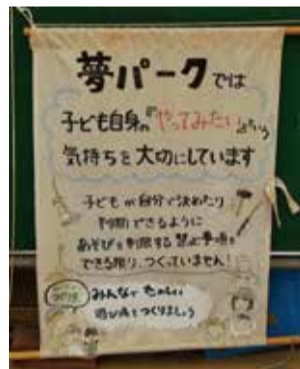 夢パークでは
子ども自身の『やってみたい』という
気持ちを大切にしています
子どもが自分で決めたり
判断できるように
あそびを制限する禁止事項を
できる限り、つくっていません!
みんなで たのしい
遊び場をつくりましょう